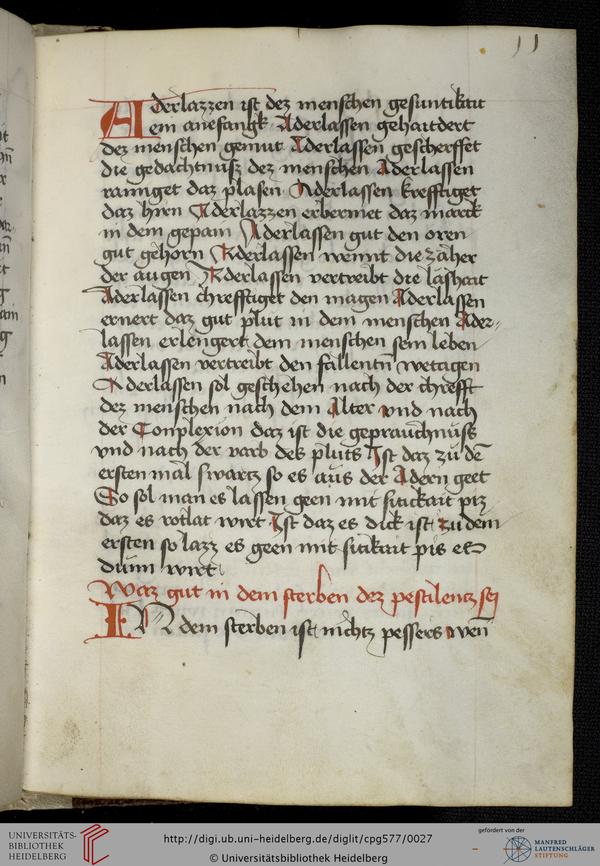 11
Aderlazzen ist dez menschen gesuntikait
ein anefangk Aderlassen gehaitdert
dez menschen gemut Aderlassen gescherffet
die gedachtnusz dez menschen Aderlassen
rainiget daz plasen Aderlassen krefftiget
daz hirn Aderlazzen erbermet daz marck
in dem gepain Aderlassen gut den oren
gut gehorn Aderlassen wennt die zäher
der augen Aderlassen vertreibt die läshait
Aderlassen chrefftiget den magen Aderlassen
ernert daz gut plut in dem menschen Ader-
lassen erlengert dem menschen sein leben
Aderlassen vertreibt den fallentn̄ wetagen
Aderlassen sol geschehen nach der chrefft
dez menschen nach dem Alter vnd nach
der Conplexion daz ist die geprauchnuss
vnd nach der varb des pluts Ist daz zu dē
ersten mal swartz so es aus der Adern geet
So sol man es lassen geen mit sitickait piz
daz es rotlat wirt Ist daz es dick ist zu dem
ersten so lazz es geen mit sitikait pis es
dunn wirt
Waz gut in dem sterben dez pestilentz sej
IN dem sterben ist nichtz pessers wen̄
UNIVERSITÄTS-
BIBLIOTHEK
HEIDELBERG
http://digi.ub.uni-heidelberg.de/diglit/cpg577/0027
© Universitätsbibliothek Heidelberg
gefördert von der
MANFRED
LAUTENSCHLÄGER
STIFTUNG